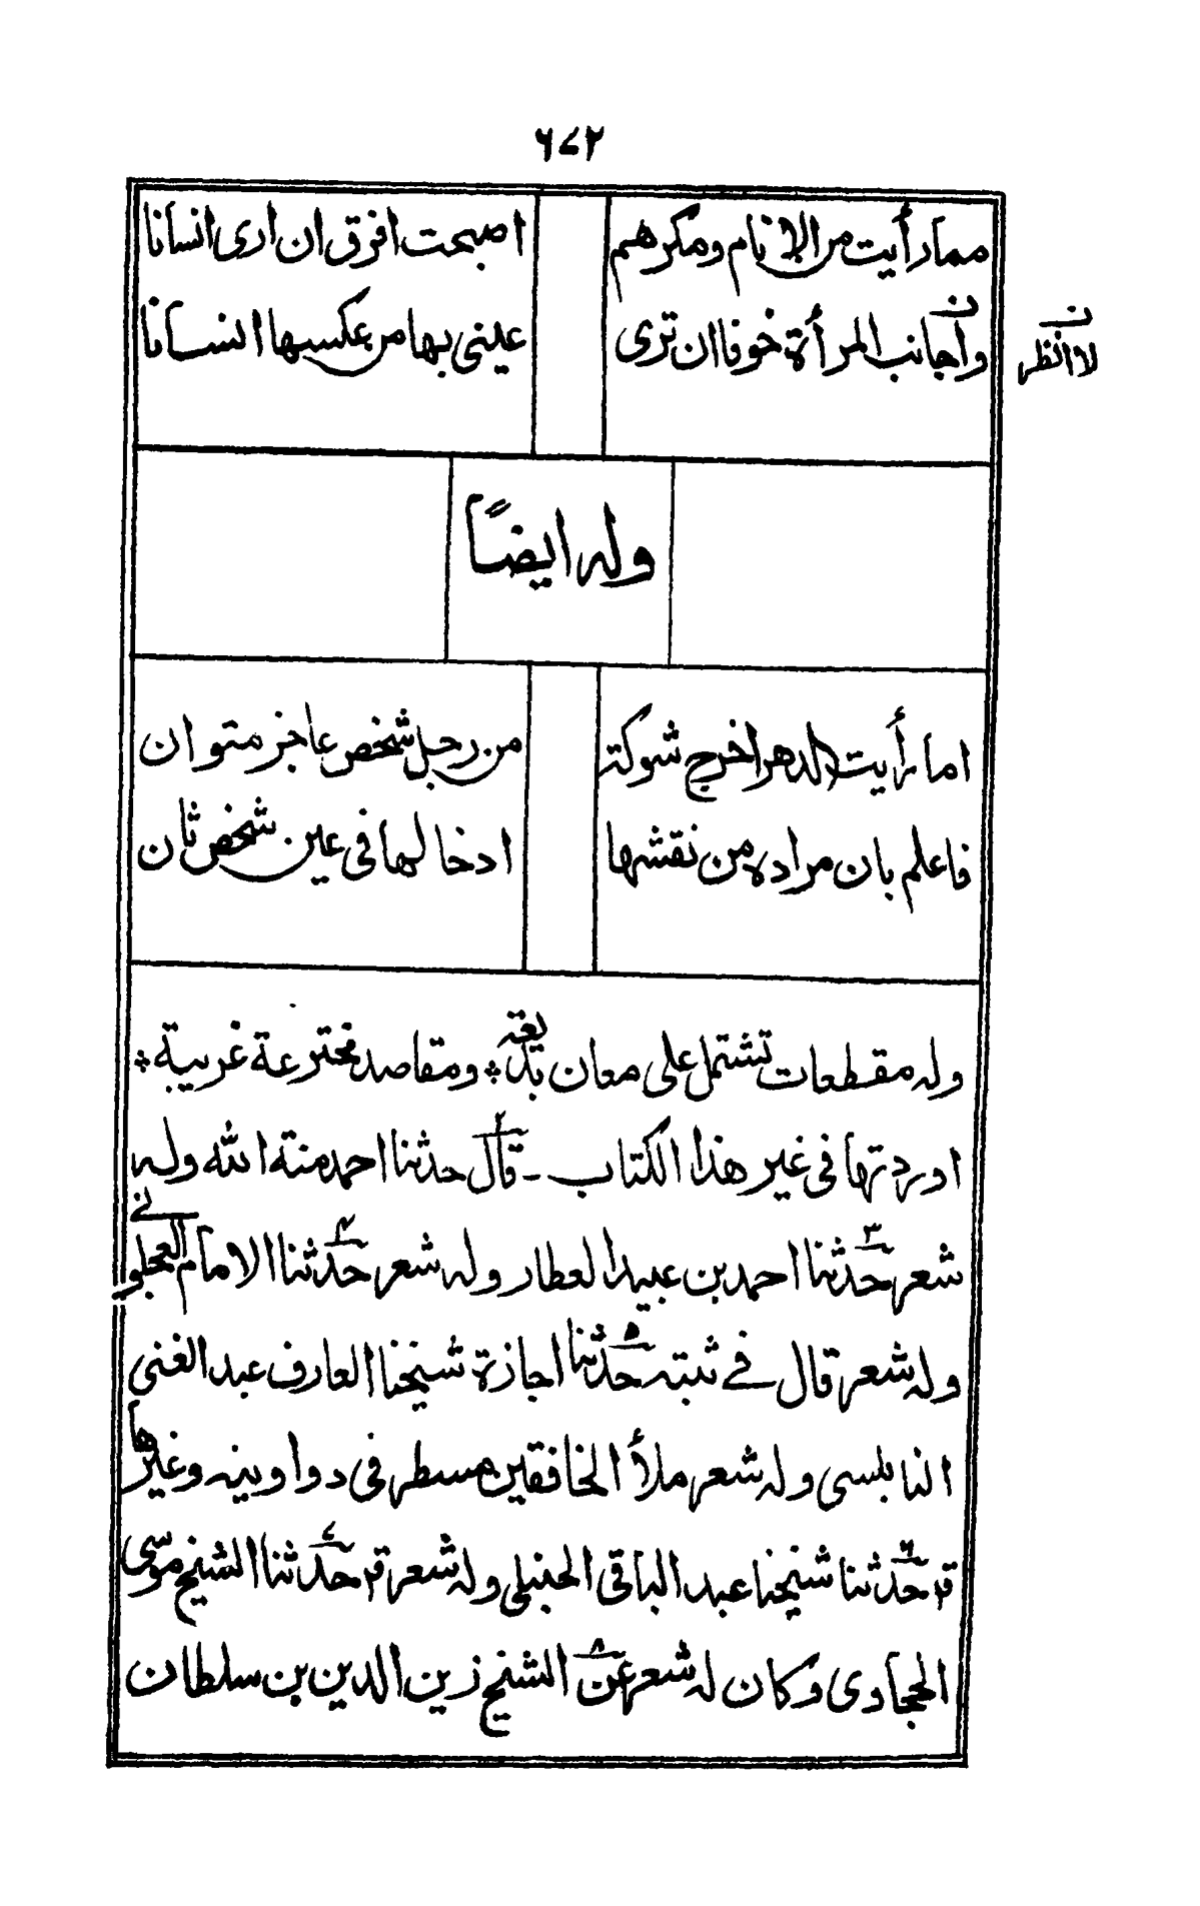 ٦٧٢
مما رأيت من الانام ومكرهم اصبحت افرق ان ارى انسانا
وأجانب المرأة خوفا ان ترى عينى بها من عكسها انسانا
ن
لا انظر
وله ايضاً
اما رأيت الدهر اخرج شوكة من رجل شخص عاجز متوان
فاعلم بان مراده من نقشها ادخالها فى عين شخص ثان
وله مقطعات تشتمل على معان بديعة ؞ ومقاصد مخترعة غريبة ؞
اوردتها فى غير هذا الكتاب - قال حدثنا احمد منة الله وله
شعر حدثنا احمد بن عبيد العطار وله شعر حدثنا الامام العجلونے
وله شعر قال فے ثبته حدثنا اجازة شيخنا العارف عبد الغنى
النابلسى وله شعر ملأ الخافقين مسطر فى دواوينه وغيرها
قٓ حدثنا شيخنا عبد الباقى الحنبلى وله شعر قٓ حدثنا الشيخ موسى
الحجاوى وكان له شعر عن الشيخ زين الدين بن سلطان